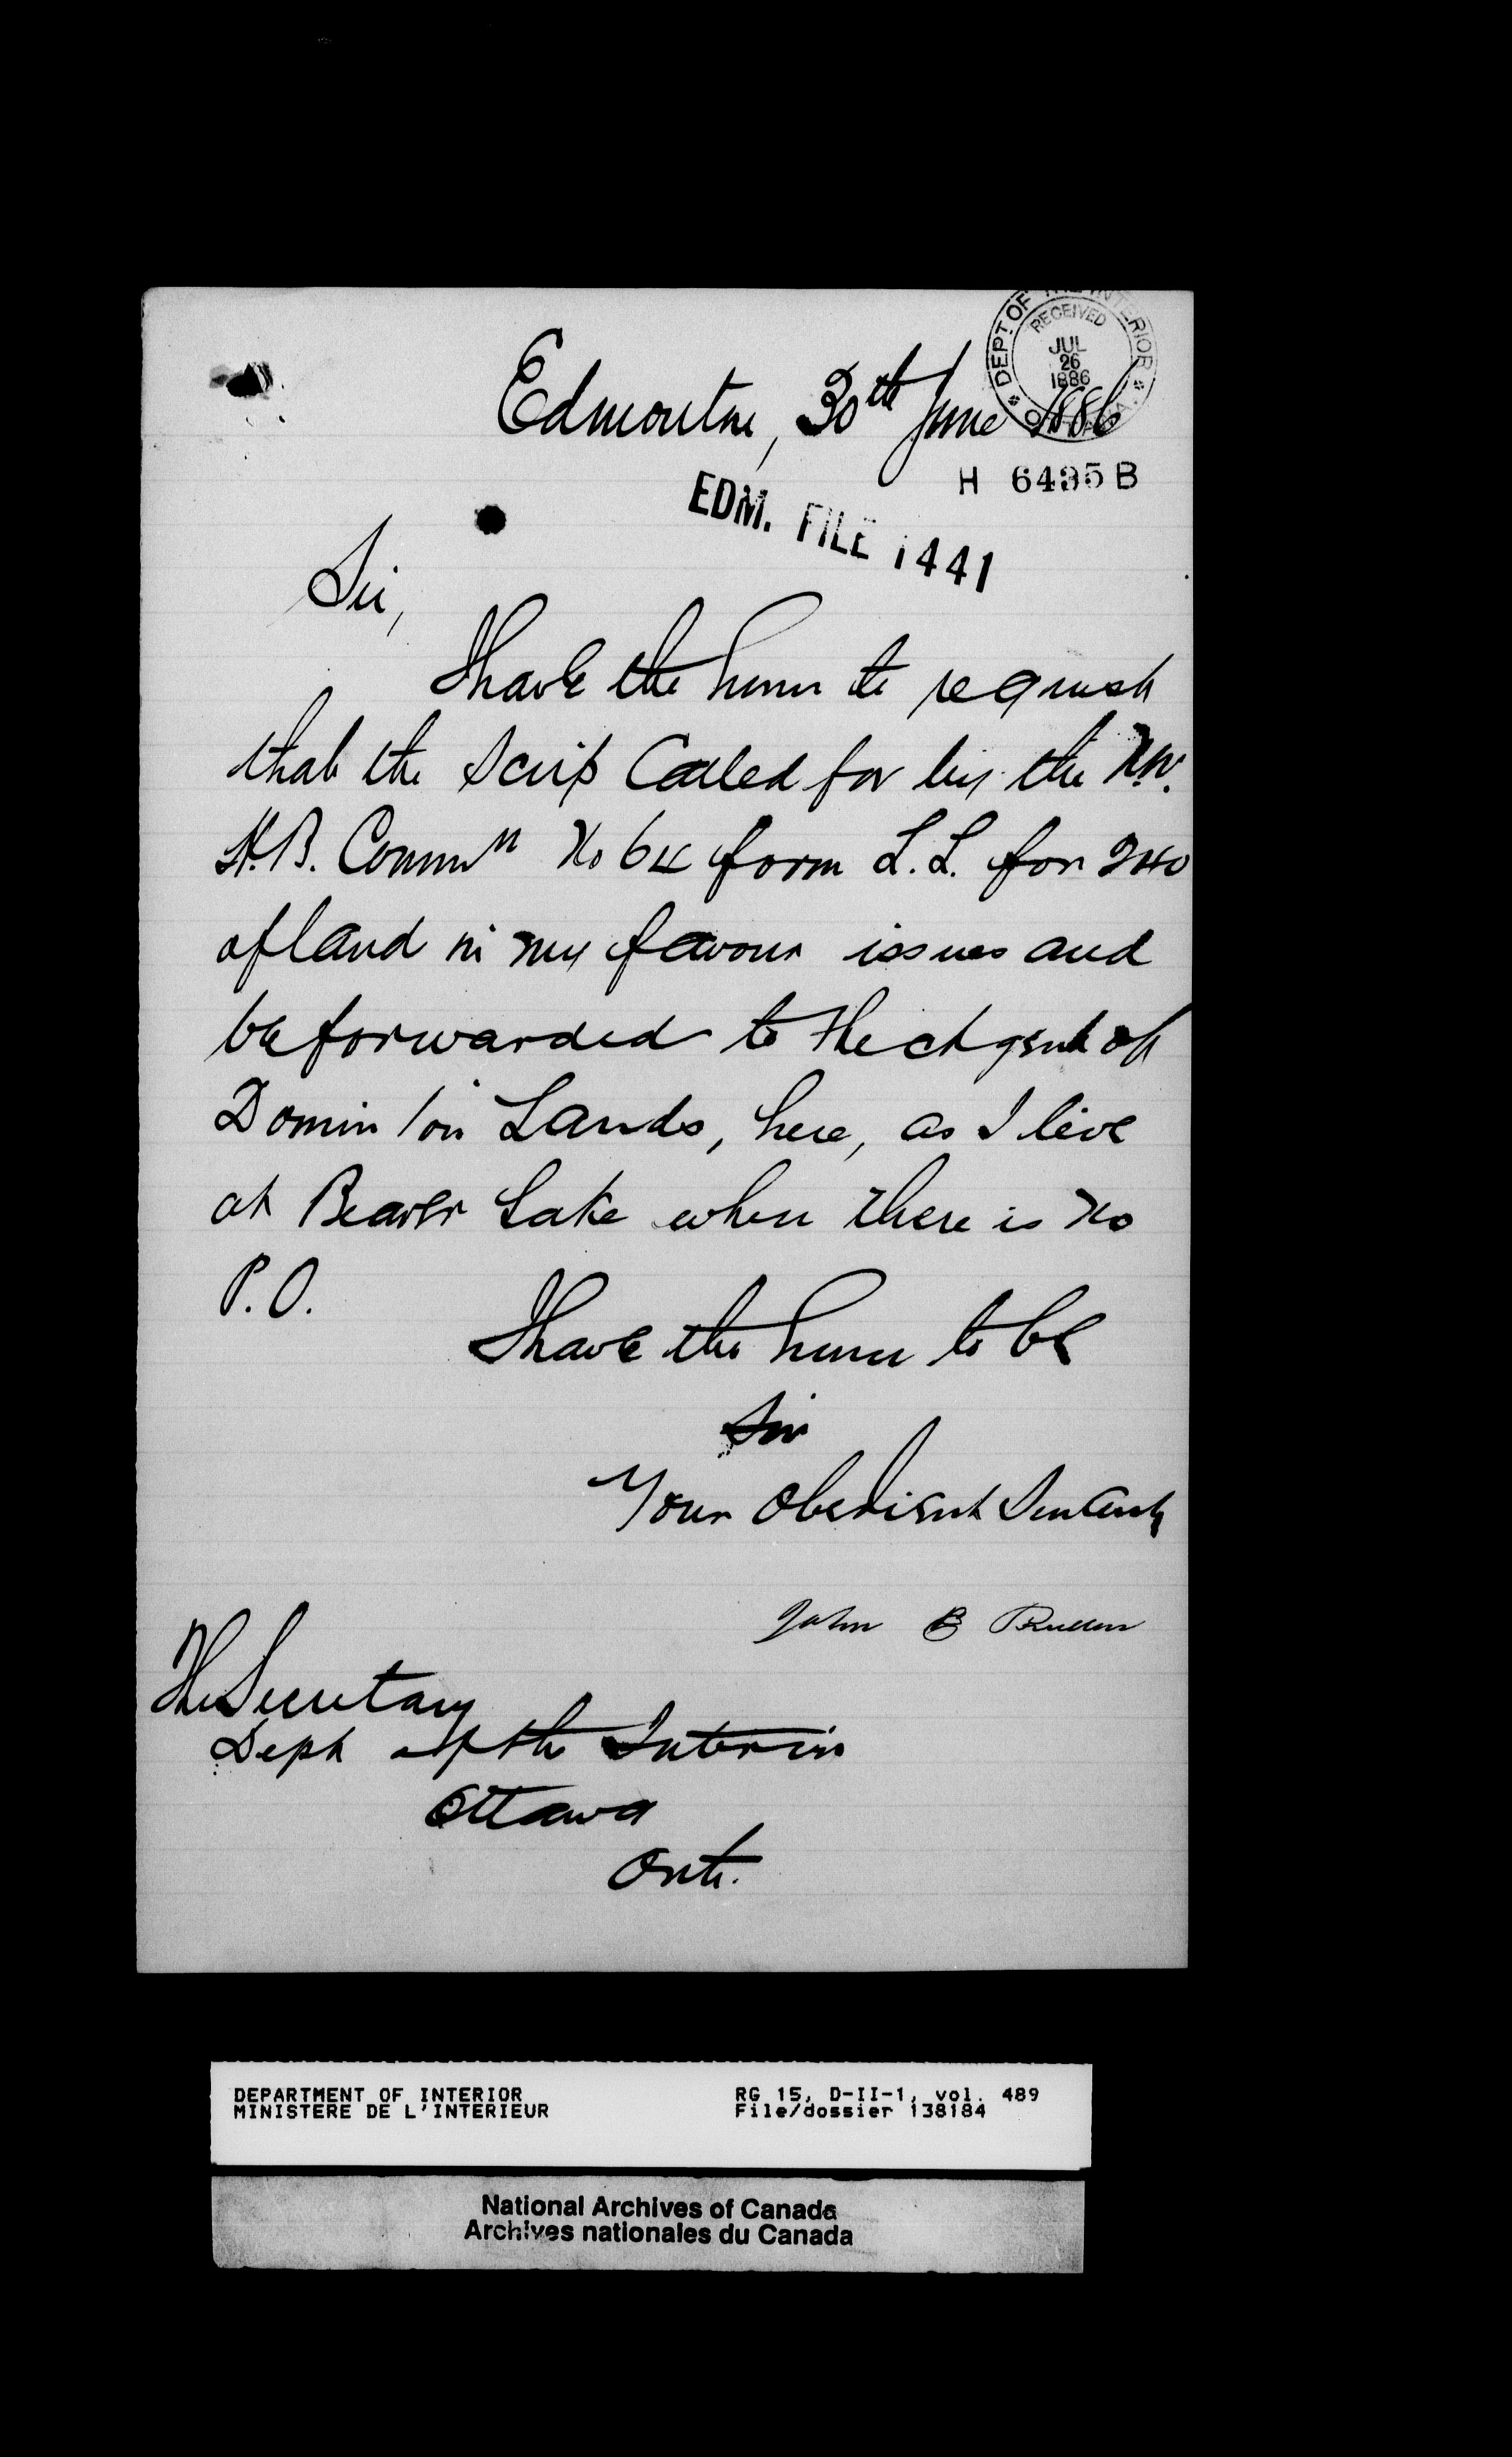 DEPT OF THE INTERIOR
RECEIVED
JUL
26
1886
Edmonton, 30th June 1886
H 6495 B
EDM. FILE 1441
Sir,
I have the honor to request
that the Scrip Called for by the N.W.
H.B. Commn No 64 form L.L. for 240
of land in my favour issues and
be forwarded to the Agent of
Dominion Lands, here, as I live
at Beaver Lake when there is no
P.O.
I have the honor to be
Sir
Your Obedient Servant
John B
The Secretary
Dept of the Interior
Ottawa
Ont.
DEPARTMENT OF INTERIOR
MINISTERE DE L'INTERIEUR
RG 15, D-II-1, vol. 489
File/dossier 138184
National Archives of Canada
Archives nationales du Canada